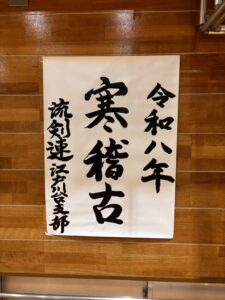 令和八年
寒稽古
流剣連江戸川台支部